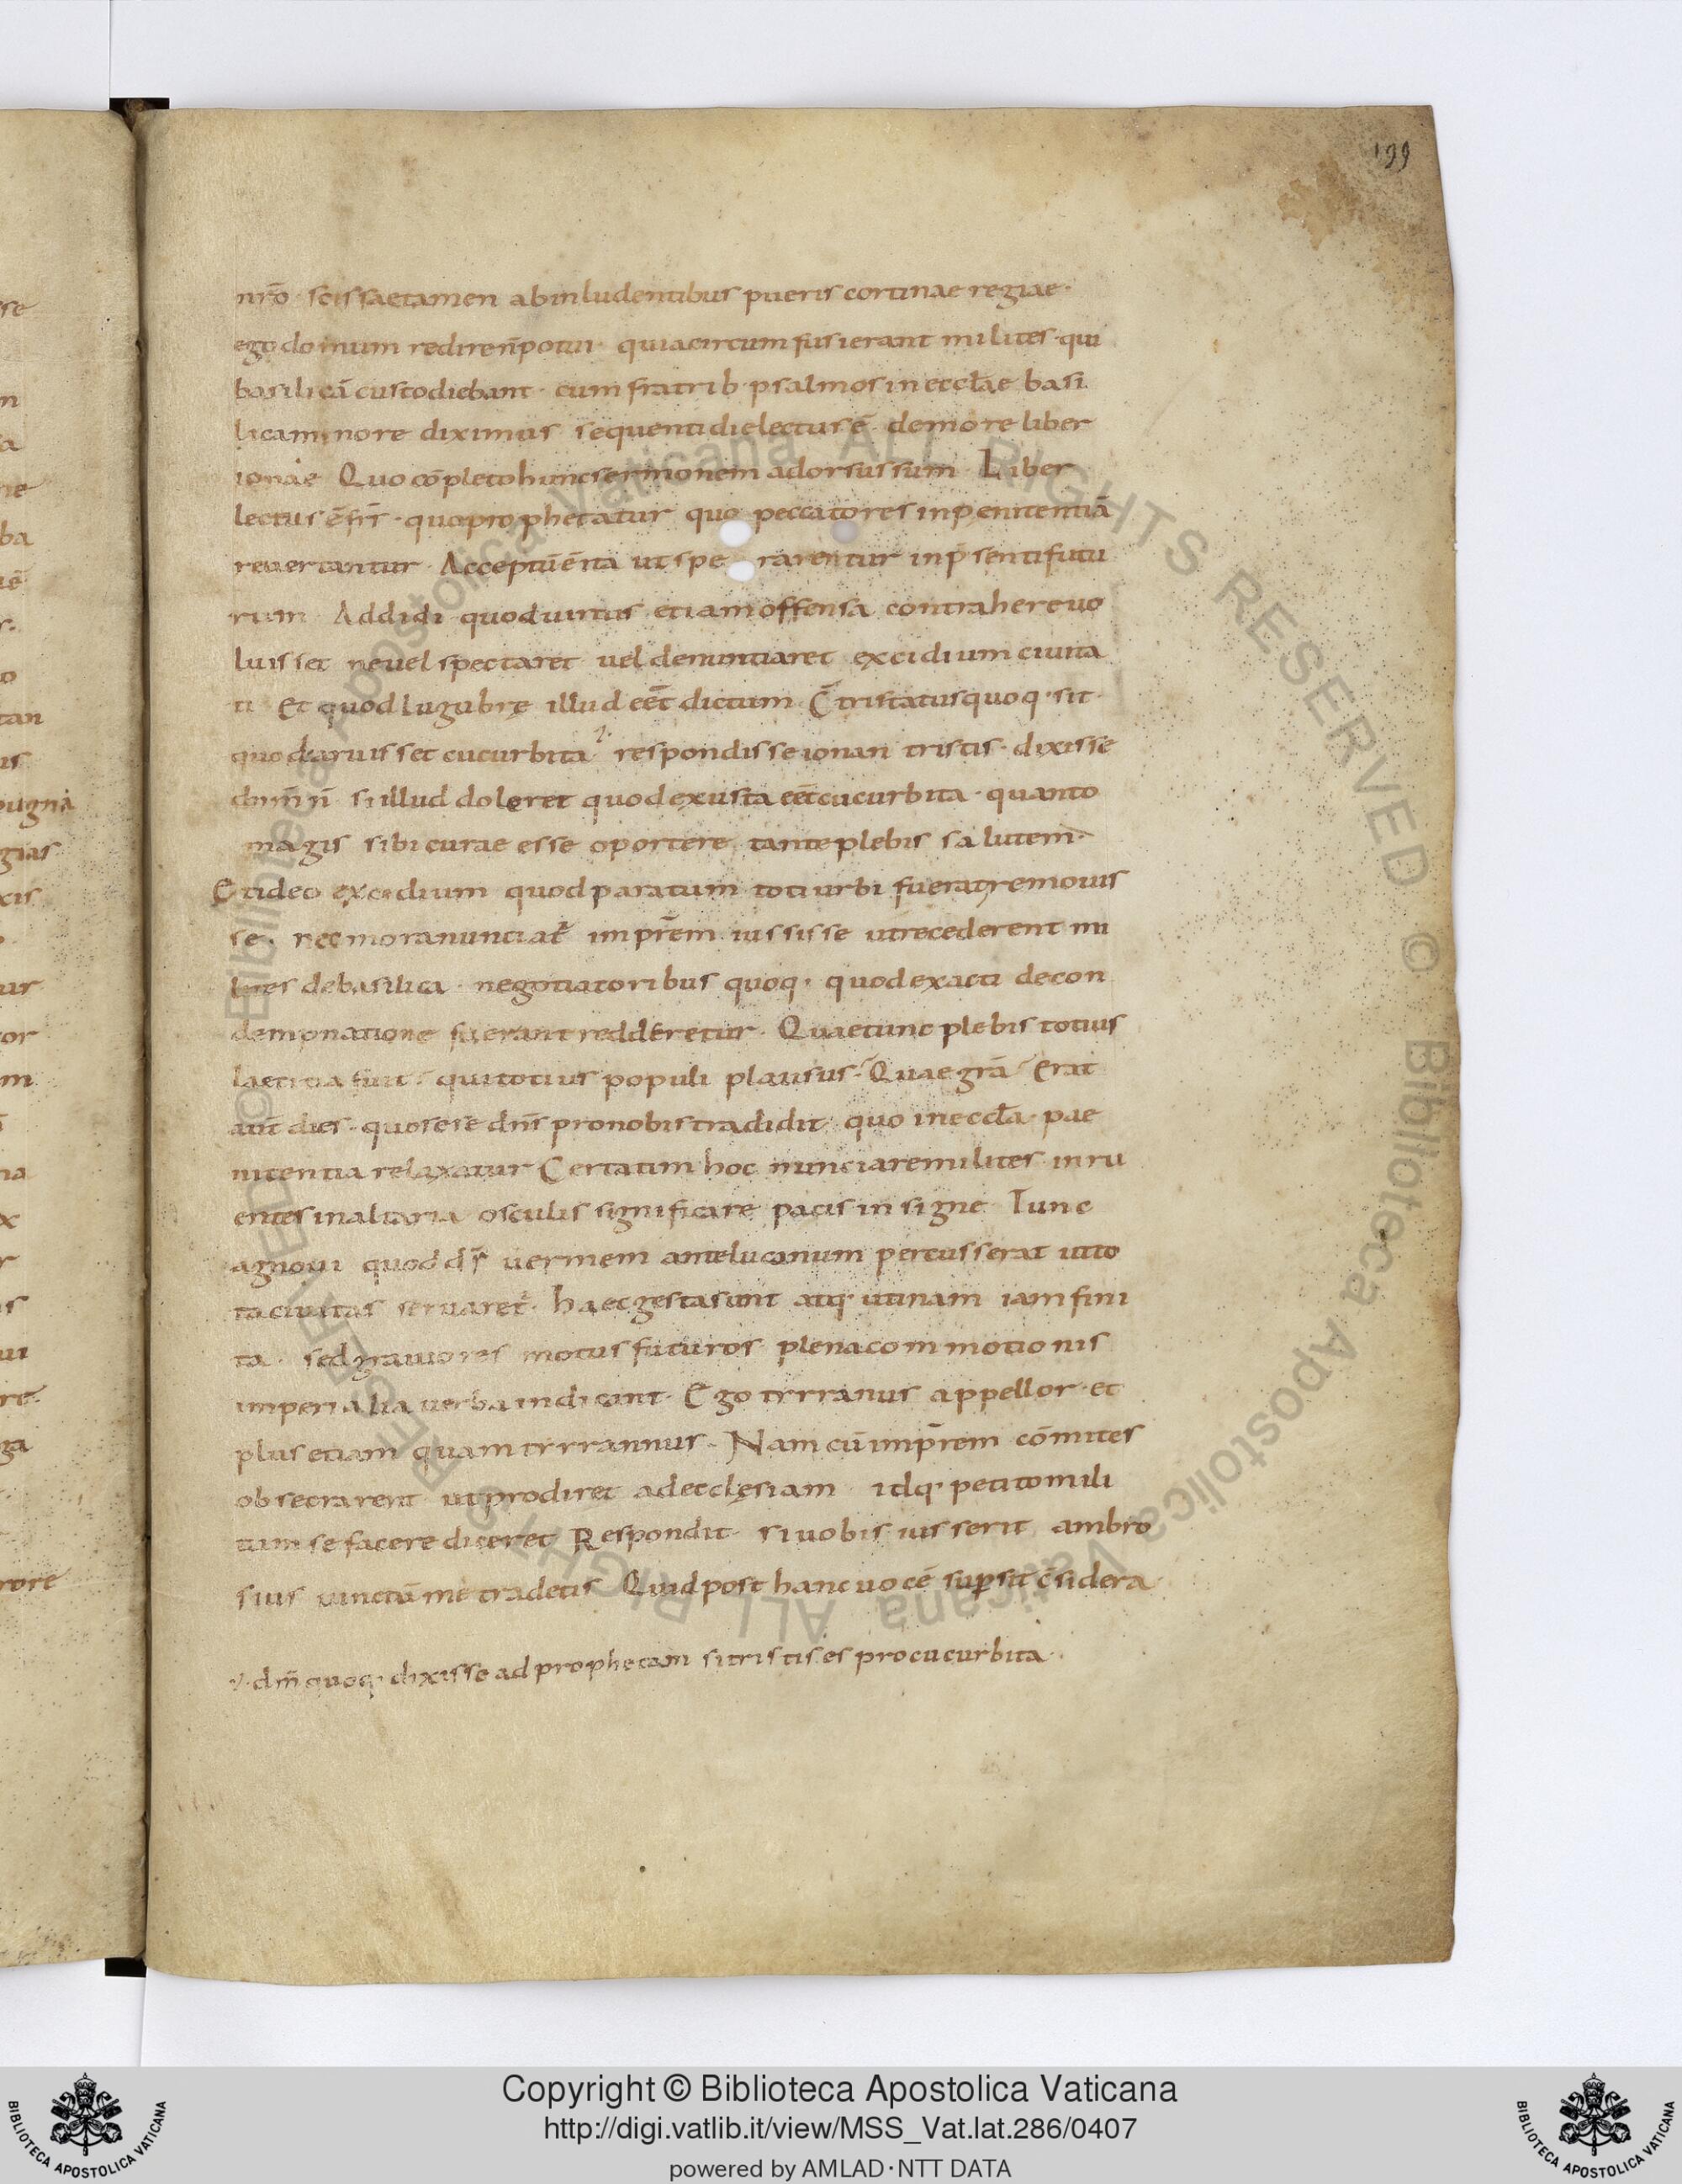 199
nr̄o · scissae tamen ab inludentibus pueris cortinae regiae ·
ego domum redire n̄ potui · quia circumfusi erant milites · qui
basilicā custodiebant · cum fratrib · psalmos in eccl̄ae basi
lica minore diximus sequenti die lectus ē de more liber
ionae Quo cōpleto hunc sermonem adorsus sum Liber
lectus ē fr̄s · quo prophetatur quo peccatores in penitentiā
revertantur · Acceptū ē ita ut spe rarentur in p̄senti futu
rum Addidi quod uirtus etiam offensa contrahere uo
luisset ne uel spectaret uel denuntiaret excidium ciuita
ti Et quod lugubre illud eēt dictum C̄tristatus quoq · sit ·
quod aruisset cucurbita respondisse ionan tristis · dixisse
dn̄m n̄ si illud doleret quod exusta eēt cucurbita · quanto
magis sibi curae esse oportere tante plebis salutem ·
Et ideo excidium quod paratum toti urbi fuerat remouis
se · nec mora nunciat̄ impr̄em iussisse ut recederent mi
lites de basilica · negotiatoribus quoq · quod exacti de con
demnatione fuerant redderetur · Quae tunc plebis totius
laetitia fuit qui totius populi plausus · Quae gr̄a Erat
aut̄ dies · quo sese dn̄s pro nobis tradidit quo in eccl̄a · pae
nitentia relaxatur Certatim hoc nunciare milites inru
entes in altaria osculis significare pacis insigne Tunc
agnoui quod d̄s uermem antelucanum percusserat ut to
ta ciuitas seruaret̄ · haec gesta sunt atq · utinam iam fini
ta · sed grauiores motus futuros plena commotionis
imperialia uerba indicant · Ego tyrranus appellor · et
plus etiam quam tyrrannus · Nam cū impr̄em cōmites
obsecrarent ut prodiret ad ecclęsiam idq · petito mili
tum se facere diceret Respondit · si uobis iusserit ambro
sius uinctū me tradetis Quid post hanc uocē sup̄sit c̄sidera
·dn̄m quoq · dixisse ad prophetam si tristis es pro cucurbita ·
Copyright © Biblioteca Apostolica Vaticana
http://digi.vatlib.it/view/MSS_Vat.lat.286/0407
powered by AMLAD·NTT DATA